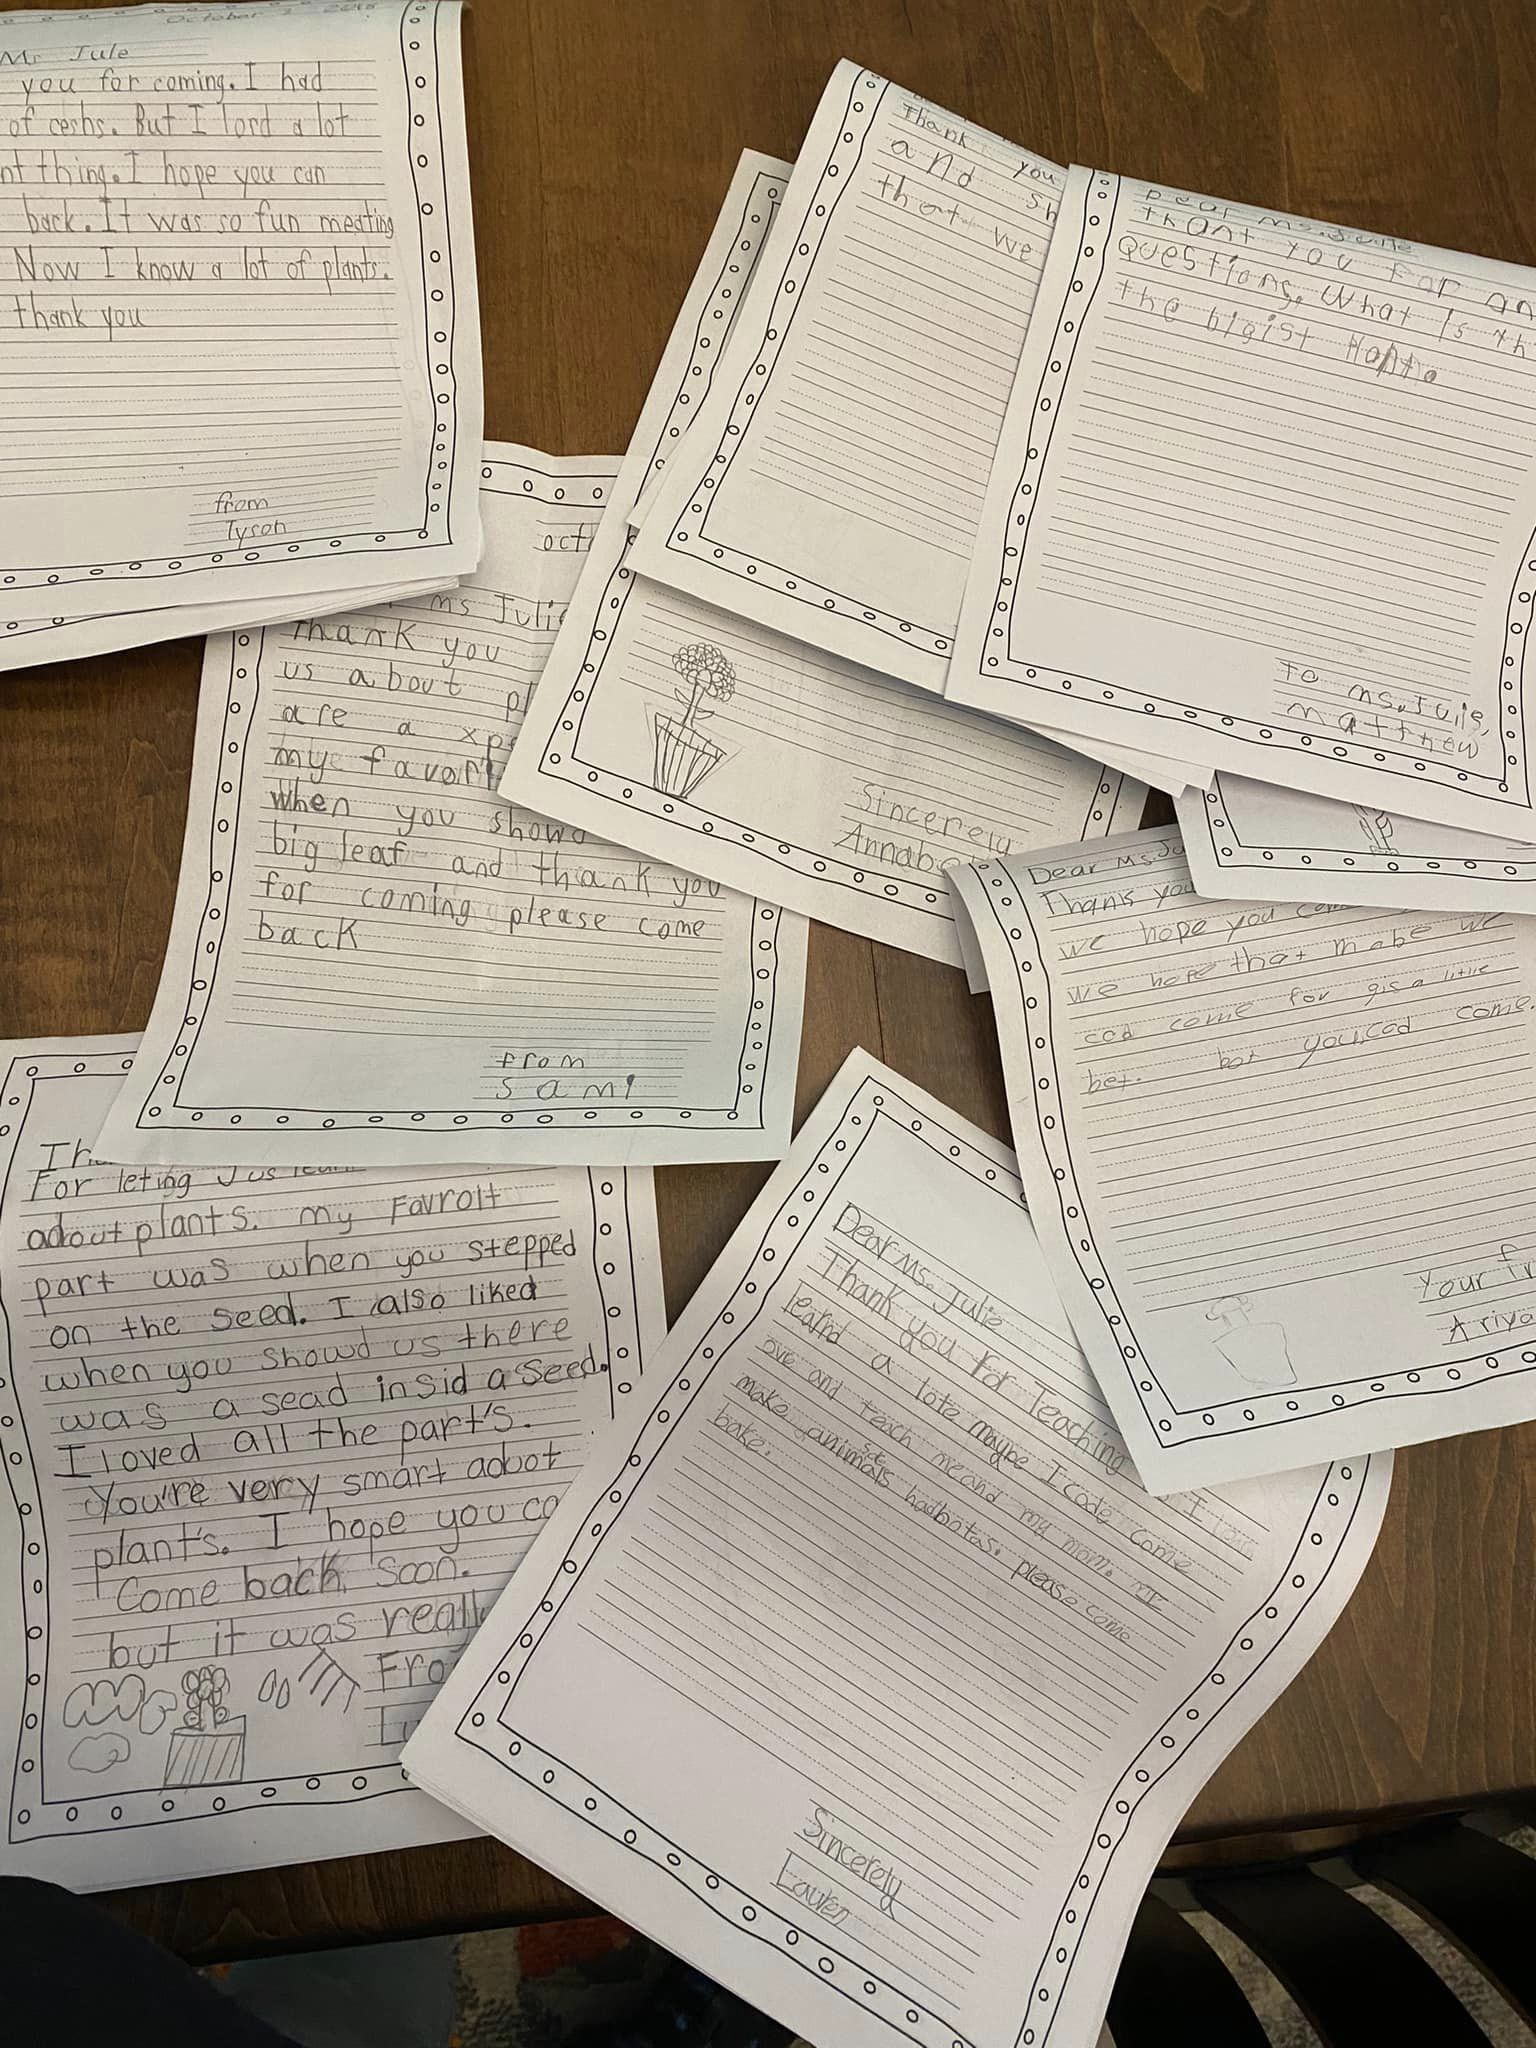 October 2018
Ms Jule
you for coming. I had
of ceshs. But I lord a lot
nt thing. I hope you can
back. It was so fun meating
Now I know a lot of plants.
thank you
from
Tyson
Thank you
and sh
that we
Dear Ms. Julie
thank you For an
Questions. What is th
the bigist
To ms. Julie,
matthew
oct
ms Julie
Thank you
us about pl
are a xpe
mye favorit
when you showd
big leaf and thank you
for coming please come
back
from
sami
Sincerely
Annabe
Dear Ms. Ju
Thank you
we hope you com
we hope that mabe we
cod come for gis a little
bet. bot you cod come.
Your fr
Ariya
Th
For leting us learn
adout plants. my Favroit
part was when you stepped
on the seed. I also liked
when you showd us there
was a sead insid a seed.
I loved all the part's.
You're very smart adout
plant's. I hope you ca
Come back soon.
but it was really
Fro
Lu
Dear Ms. Julie
Thank you For Teaching I
learnd a lote maybe I code come
ove and teach me and my mom.
make animals hadbatas. please come
bake.
Sincerely
Lauren